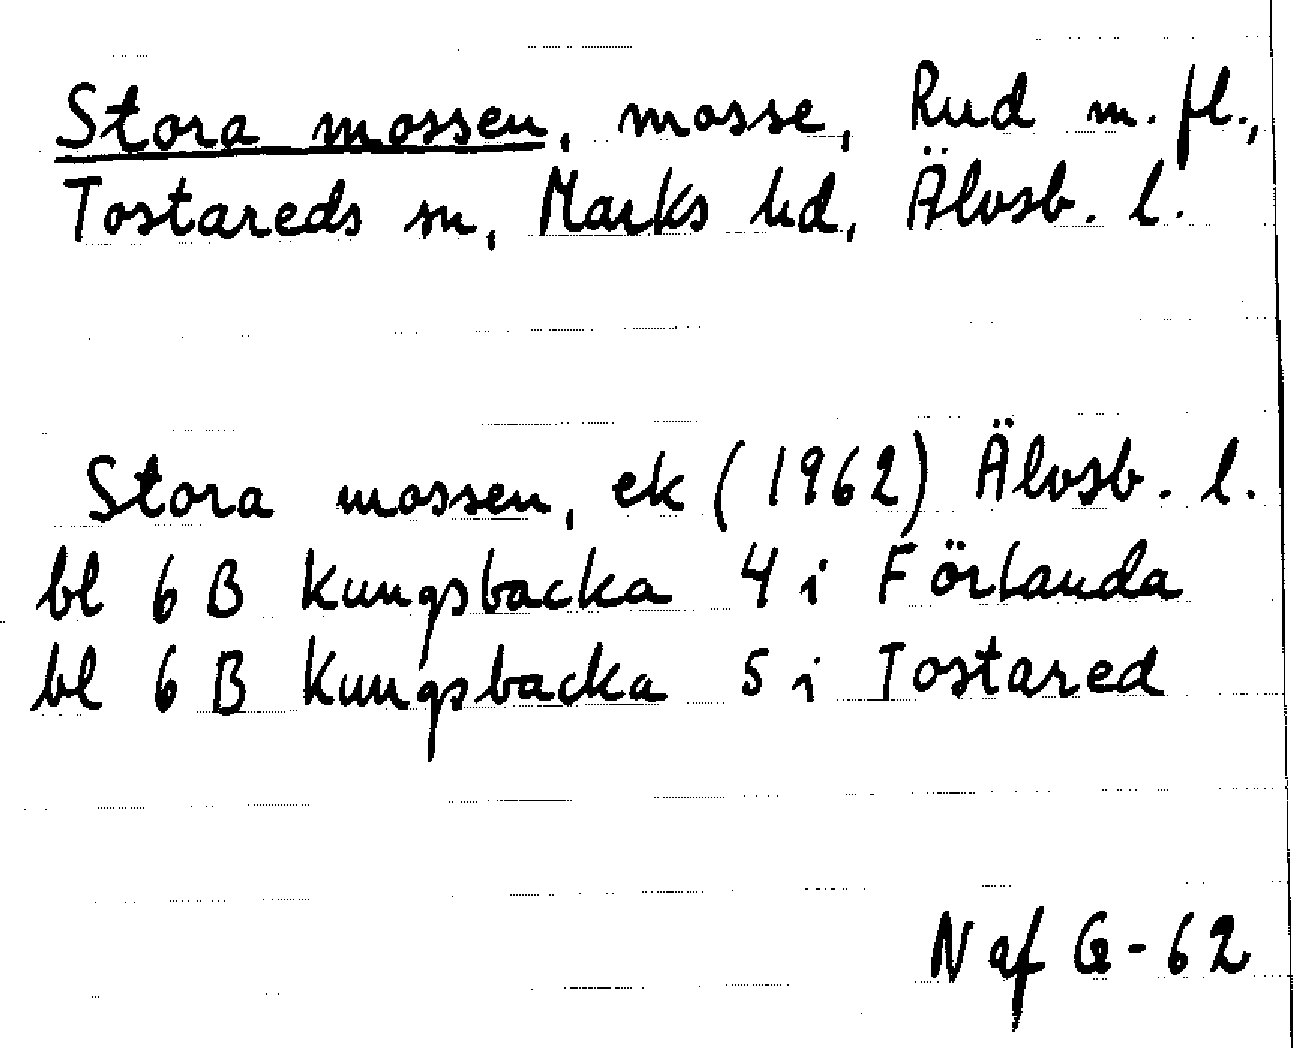 Stora mossen, mosse, Rud m. fl.,
Tostareds sn, Marks hd, Älvsb. l.
Stora mossen, ek (1962) Älvsb. l.
bl 6 B Kungsbacka 4 i Förlanda
bl 6 B Kungsbacka 5 i Tostared
N af G-62